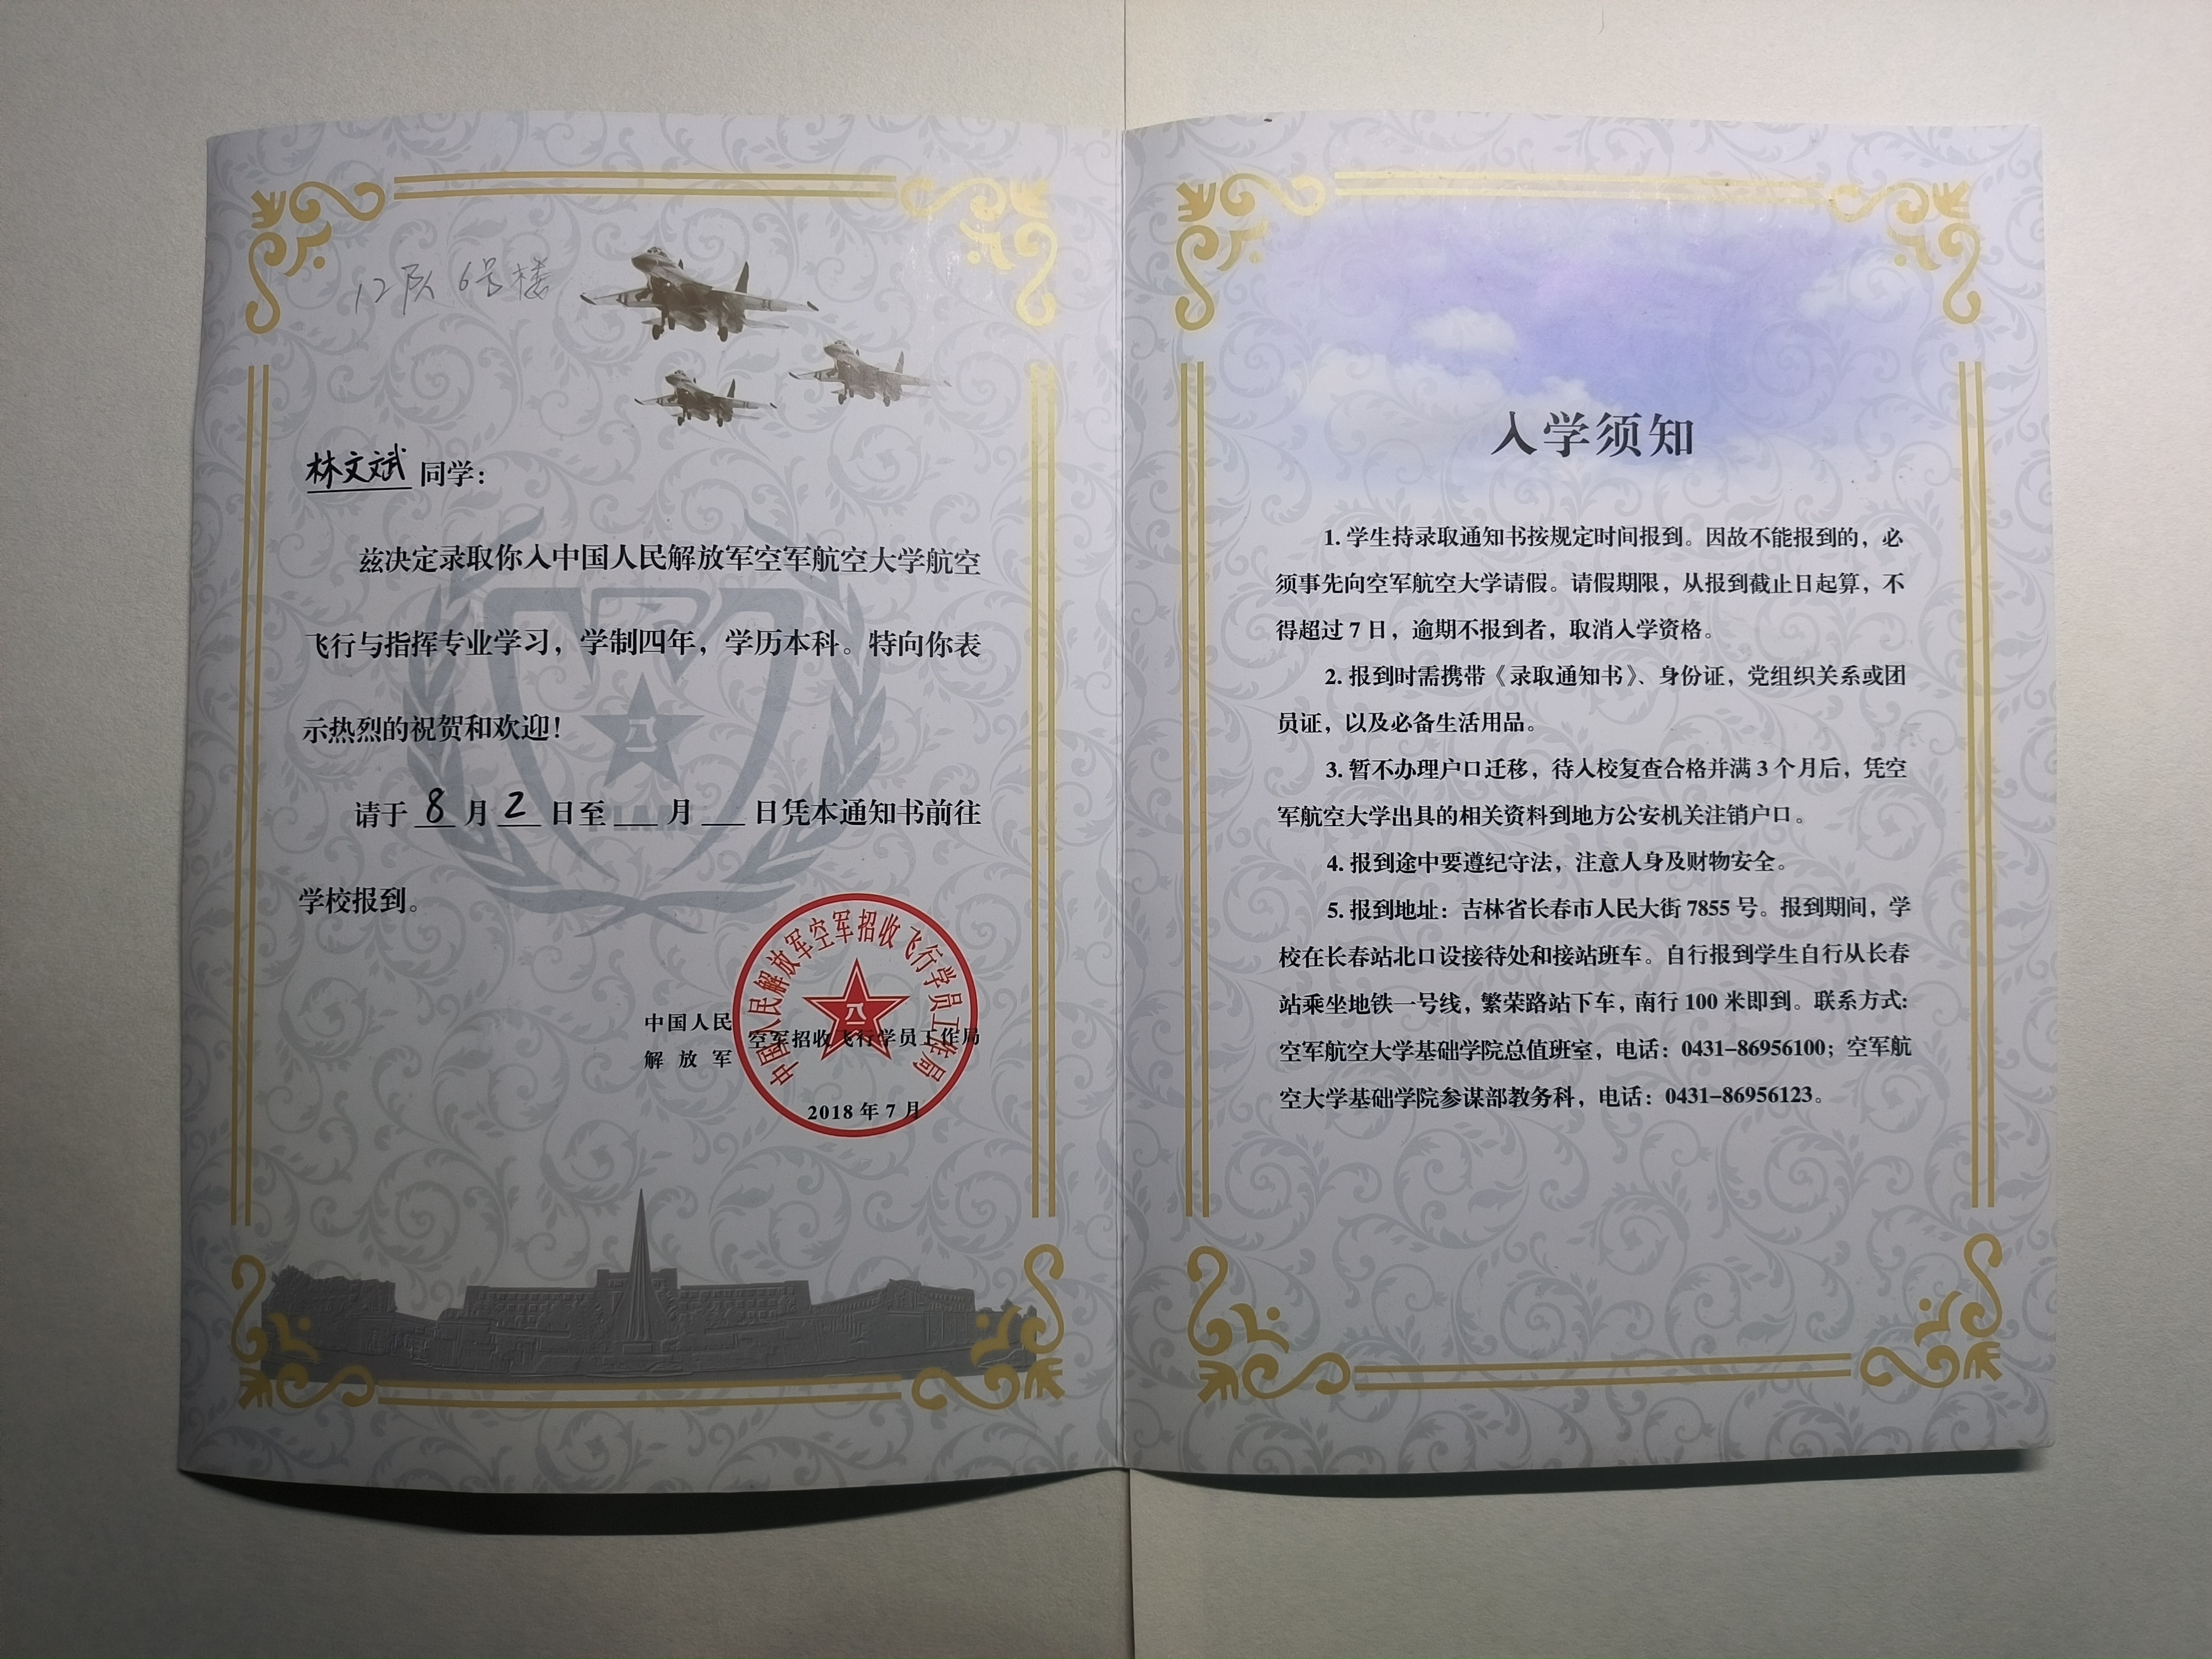 12队 6号楼
林文斌 同学：
兹决定录取你入中国人民解放军空军航空大学航空
飞行与指挥专业学习，学制四年，学历本科。特向你表
示热烈的祝贺和欢迎！
请于 8 月 2 日至 __ 月 __ 日凭本通知书前往
学校报到。
中国人民
解放军
空军招收飞行学员工作局
中国人民解放军空军招收飞行学员工作局
八一
2018年7月
入学须知
1. 学生持录取通知书按规定时间报到。因故不能报到的，必
须事先向空军航空大学请假。请假期限，从报到截止日起算，不
得超过7日，逾期不报到者，取消入学资格。
2. 报到时需携带《录取通知书》、身份证，党组织关系或团
员证，以及必备生活用品。
3. 暂不办理户口迁移，待入校复查合格并满3个月后，凭空
军航空大学出具的相关资料到地方公安机关注销户口。
4. 报到途中要遵纪守法，注意人身及财物安全。
5. 报到地址：吉林省长春市人民大街7855号。报到期间，学
校在长春站北口设接待处和接站班车。自行报到学生自行从长春
站乘坐地铁一号线，繁荣路站下车，南行100米即到。联系方式：
空军航空大学基础学院总值班室，电话：0431-86956100；空军航
空大学基础学院参谋部教务科，电话：0431-86956123。